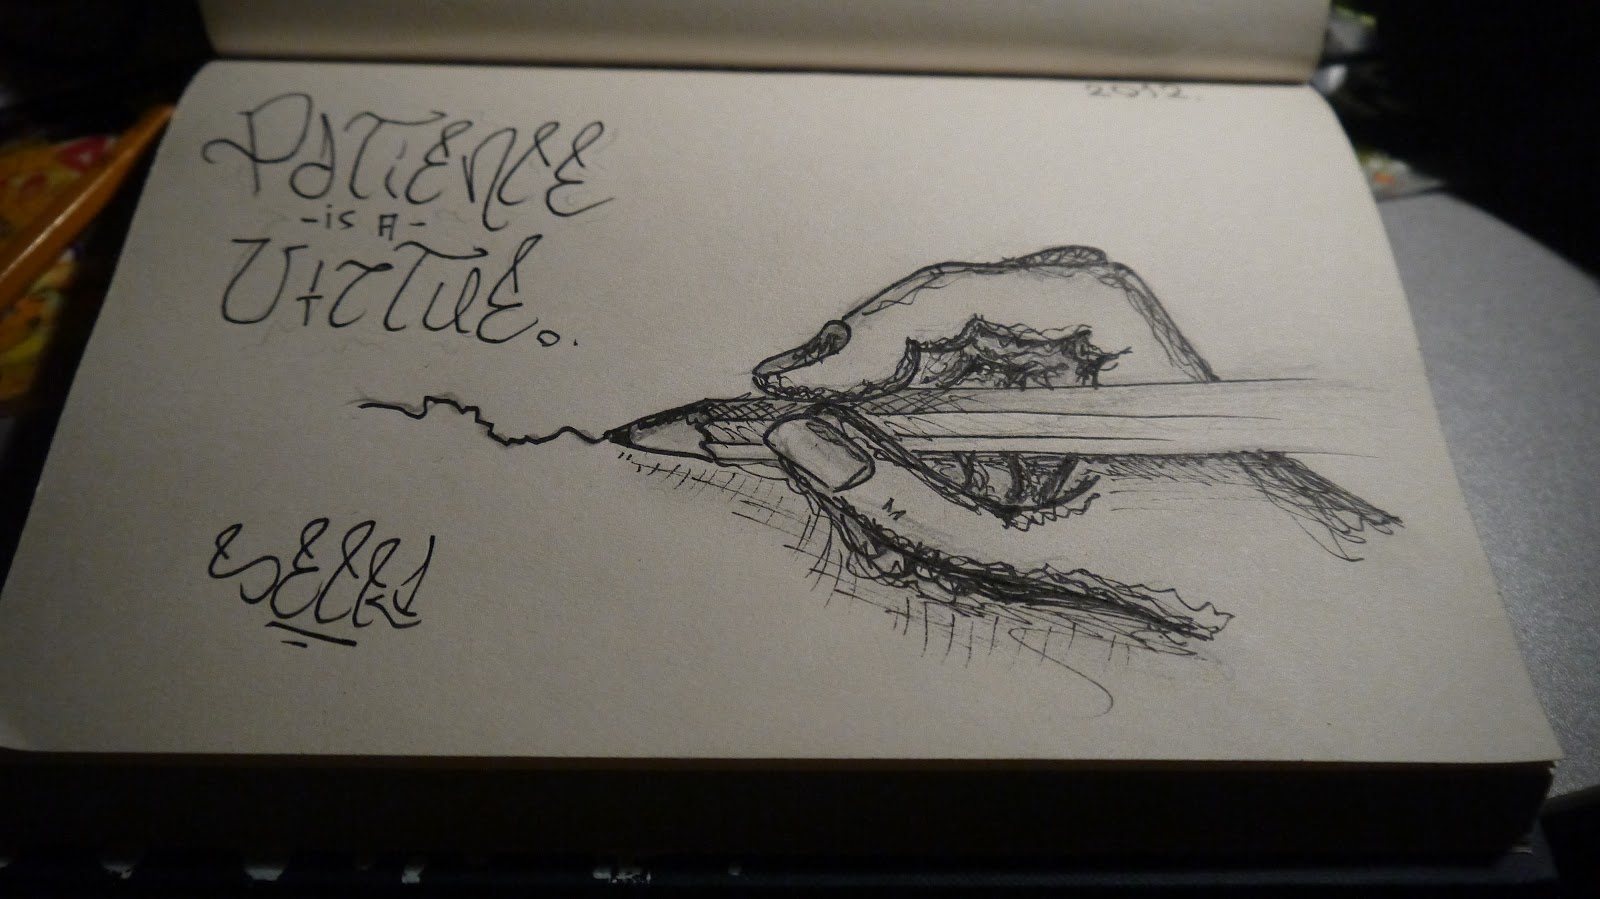 2012.
PATiENCE
-is A-
ViRTUE.
M